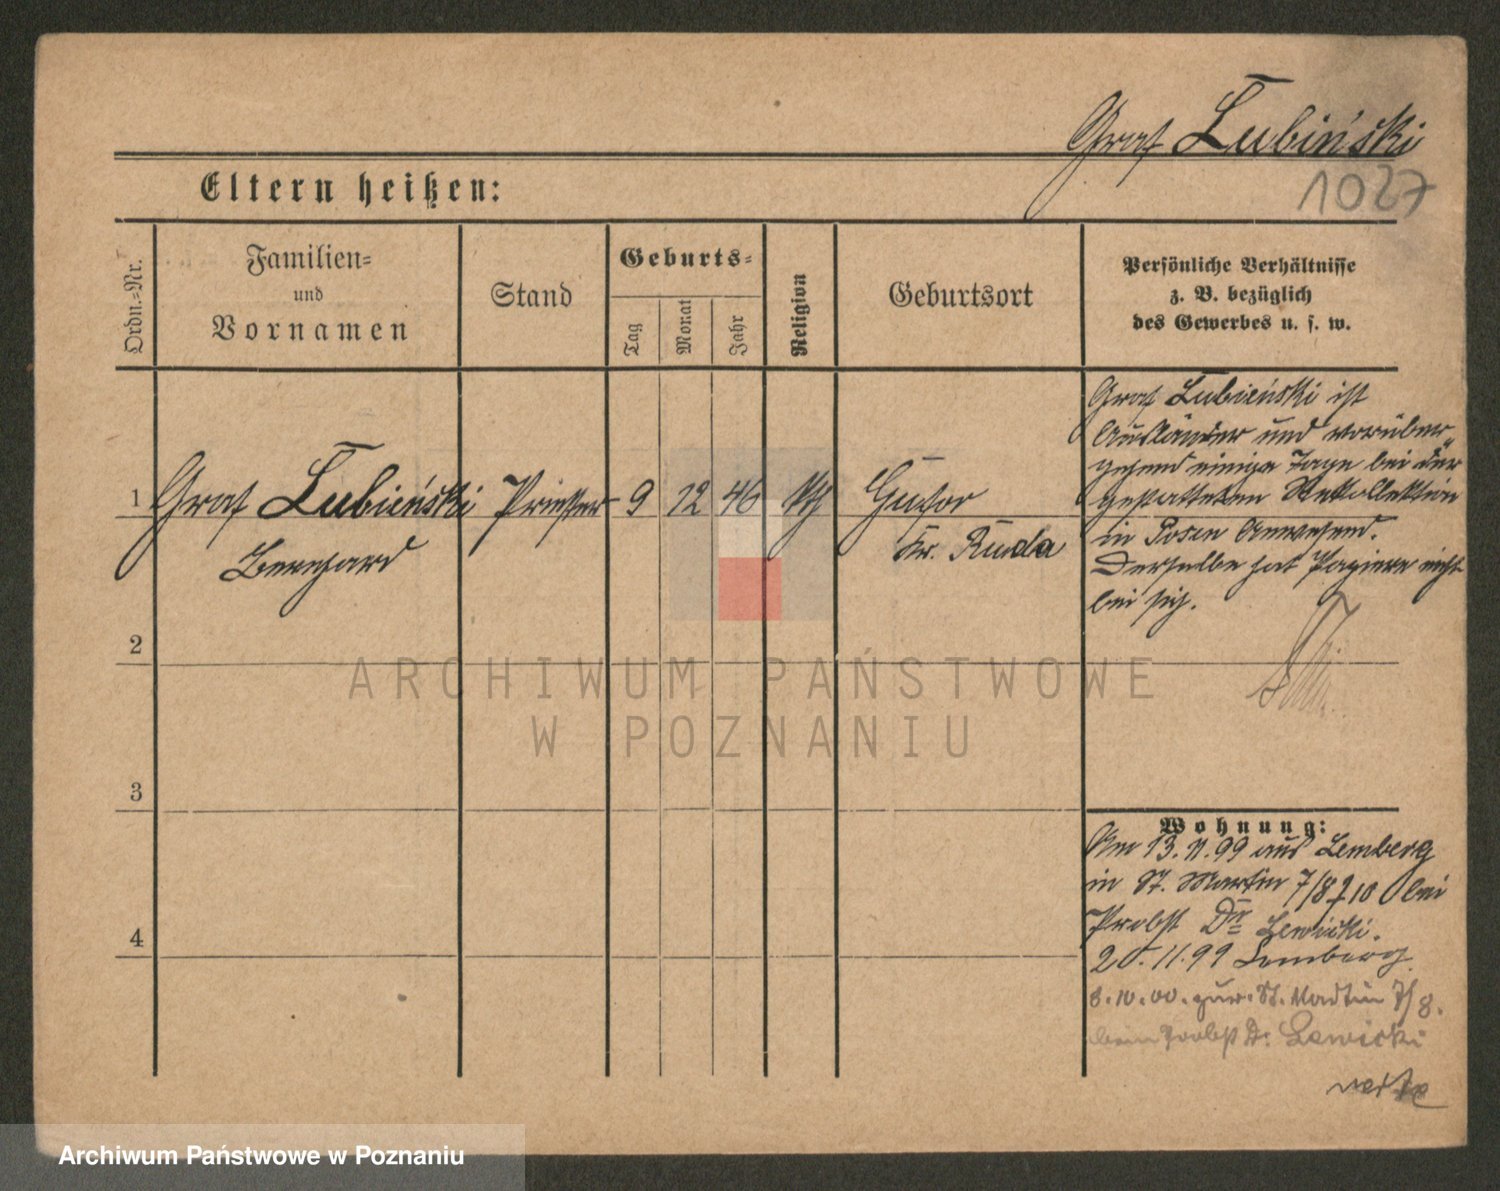 Graf Lubiński
1027
Eltern heißen:
Ordn.-Nr.
Familien-
und
Vornamen
Stand
Geburts-
Tag
Monat
Jahr
Religion
Geburtsort
Persönliche Verhältnisse
z. B. bezüglich
des Gewerbes u. s. w.
1 Graf Lubieński Priester 9 12 46 kth
Bernhard
Kr. Ruda
Graf Lubieński ist
Ausländer und vorüber-
gehend einige Tage bei der
gestatteten Rekollektion
in Posen anwesend.
Derselbe hat Papiere nicht
bei sich.
2
3
4
Wohnung:
Am 13.11.99 aus Lemberg
in St. Martin 7/8 10 bei
Probst Dr Lewicki.
20.11.99 Lemberg.
8.10.00. zur. St. Martin 7/8.
beim Probst Dr. Lewicki
ARCHIWUM PAŃSTWOWE
W POZNANIU
Archiwum Państwowe w Poznaniu